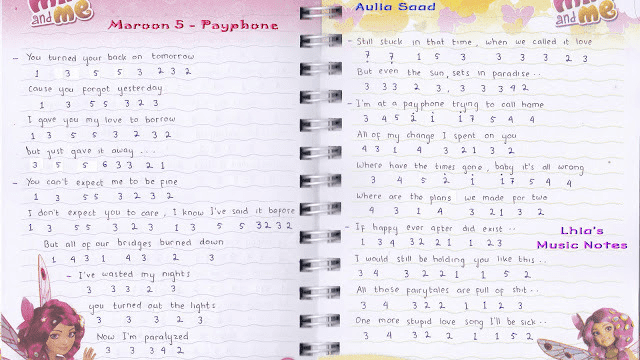 and me
Maroon 5 - Payphone
- You turned your back on tomorrow
1 3 5 5 3 2 3 2
Cause you forgot yesterday
1 3 5 5 3 2 3
I gave you my love to borrow
1 3 5 5 5 3 2 3 2
but just gave it away ...
3 5 5 6 3 3 2 1
- You can't expect me to be fine
1 3 5 5 3 2 3 2
I don't expect you to care, I know I've said it before
1 3 5 5 3 2 3 1 3 5 5 3 2 3 2
But all of our bridges burned down
1 4 3 1 4 3 2 3
- I've wasted my nights
3 3 3 2 3
you turned out the lights
3 3 3 2 3
Now I'm paralyzed
3 3 3 4 2
Aulia Saad
and me
- Still stuck in that time, when we called it love
7 7 1 5 3 3 3 3 2 3
But even the sun, sets in paradise..
3 3 3 2 3, 3 3 3 4 2
- I'm at a payphone trying to call home
3 4 5 2 1 1 7 5 4 4
All of my change I spent on you
4 3 1 4 3 2 1 3 2
Where have the times gone, baby it's all wrong
3 4 5 2 1 1 7 5 4 4
Where are the plans we made for two
4 3 1 4 3 2 1 3 2
- If happy ever after did exist..
1 3 4 3 2 2 1 1 2 3
I would still be holding you like this..
3 4 3 2 2 1 1 5 2
All those fairytales are full of shit..
3 4 3 2 2 1 1 2 3
One more stupid love song I'll be sick..
3 4 3 2 2 1 1 5 2
Lhia's
Music Notes